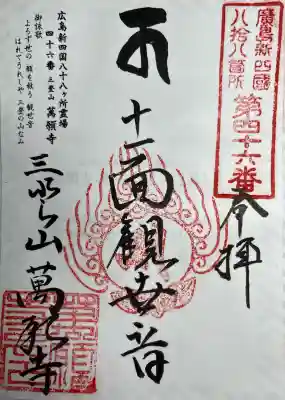 廣島新四國
八拾八箇所
第四十六番
奉拝
十一面観世音
三界山
萬願寺
広島新四国八十八ヶ所霊場
四十六番 三登山 萬願寺
御詠歌
よろず世の 願を救う 観世音
はれてうれしや 三登の山なみ